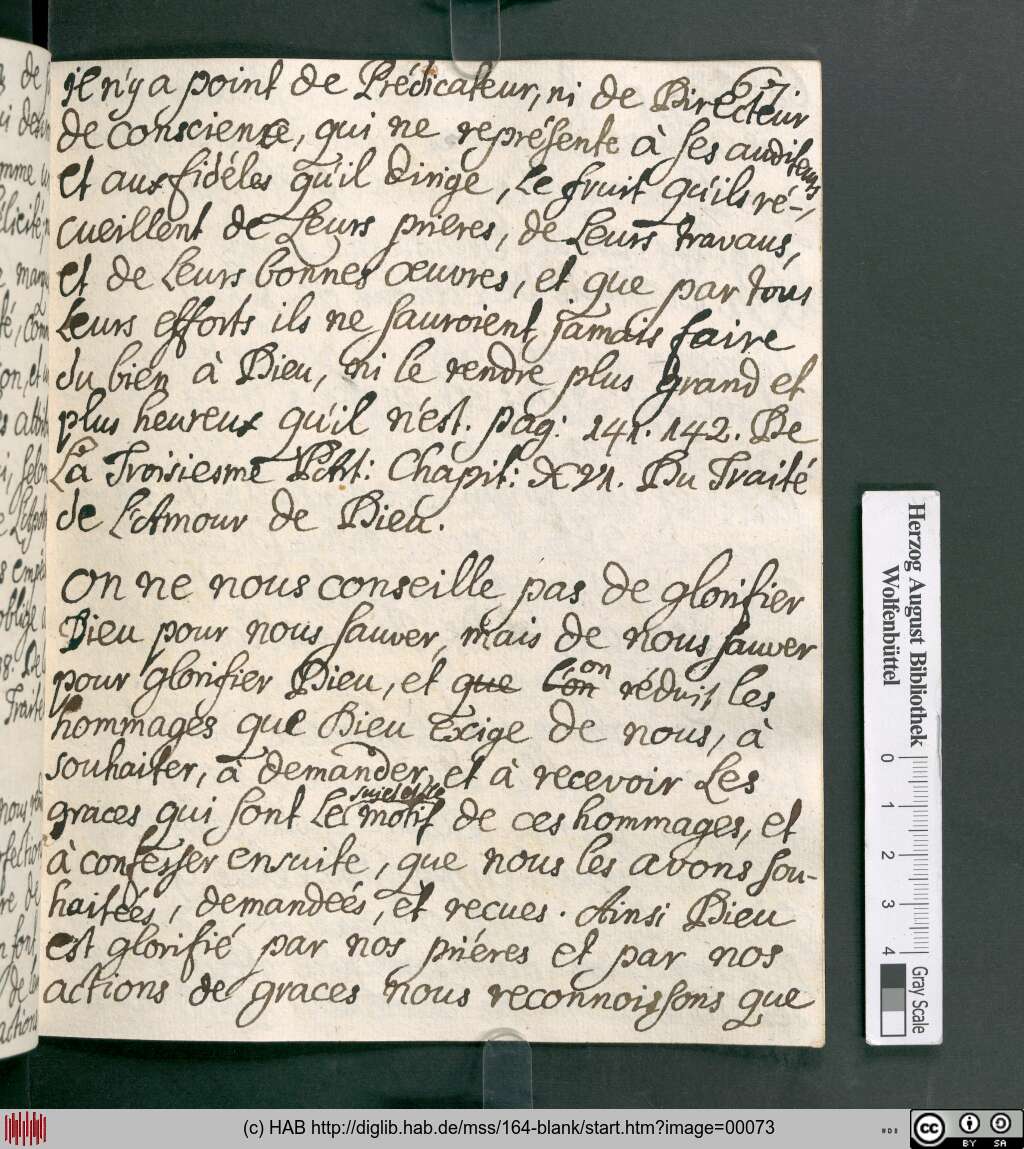 67.
il n'y a point de Prédicateur, ni de Directeur
de conscience, qui ne représente à ses auditeurs
et aux fidéles qu'il dirige, le fruit qu'ils ré-
cueillent de Leurs prieres, de Leurs travaus,
et de Leurs bonnes œuvres, et que par tous
Leurs efforts ils ne sauroient jamais faire
du bien à Dieu, ni le rendre plus grand et
plus heureux qu'il n'est. pag: 141. 142. De
La Troisiesme Part: Chapit: XVI. Du Traité
de L'Amour de Dieu.
On ne nous conseille pas de glorifier
Dieu pour nous sauver, mais de nous sauver
pour glorifier Dieu, et que l'on on réduit les
hommages que Dieu exige de nous, à
souhaiter, à demander, et à recevoir Les
graces qui sont Le sujet et le motif de ces hommages, et
à confesser ensuite, que nous les avons sou-
haitées, demandées, et recues. Ainsi Dieu
est glorifié par nos priéres et par nos
actions de graces nous reconnoissons que
Herzog August Bibliothek
Wolfenbüttel
0 1 2 3 4
Gray Scale
(c) HAB http://diglib.hab.de/mss/164-blank/start.htm?image=00073
cc BY SA